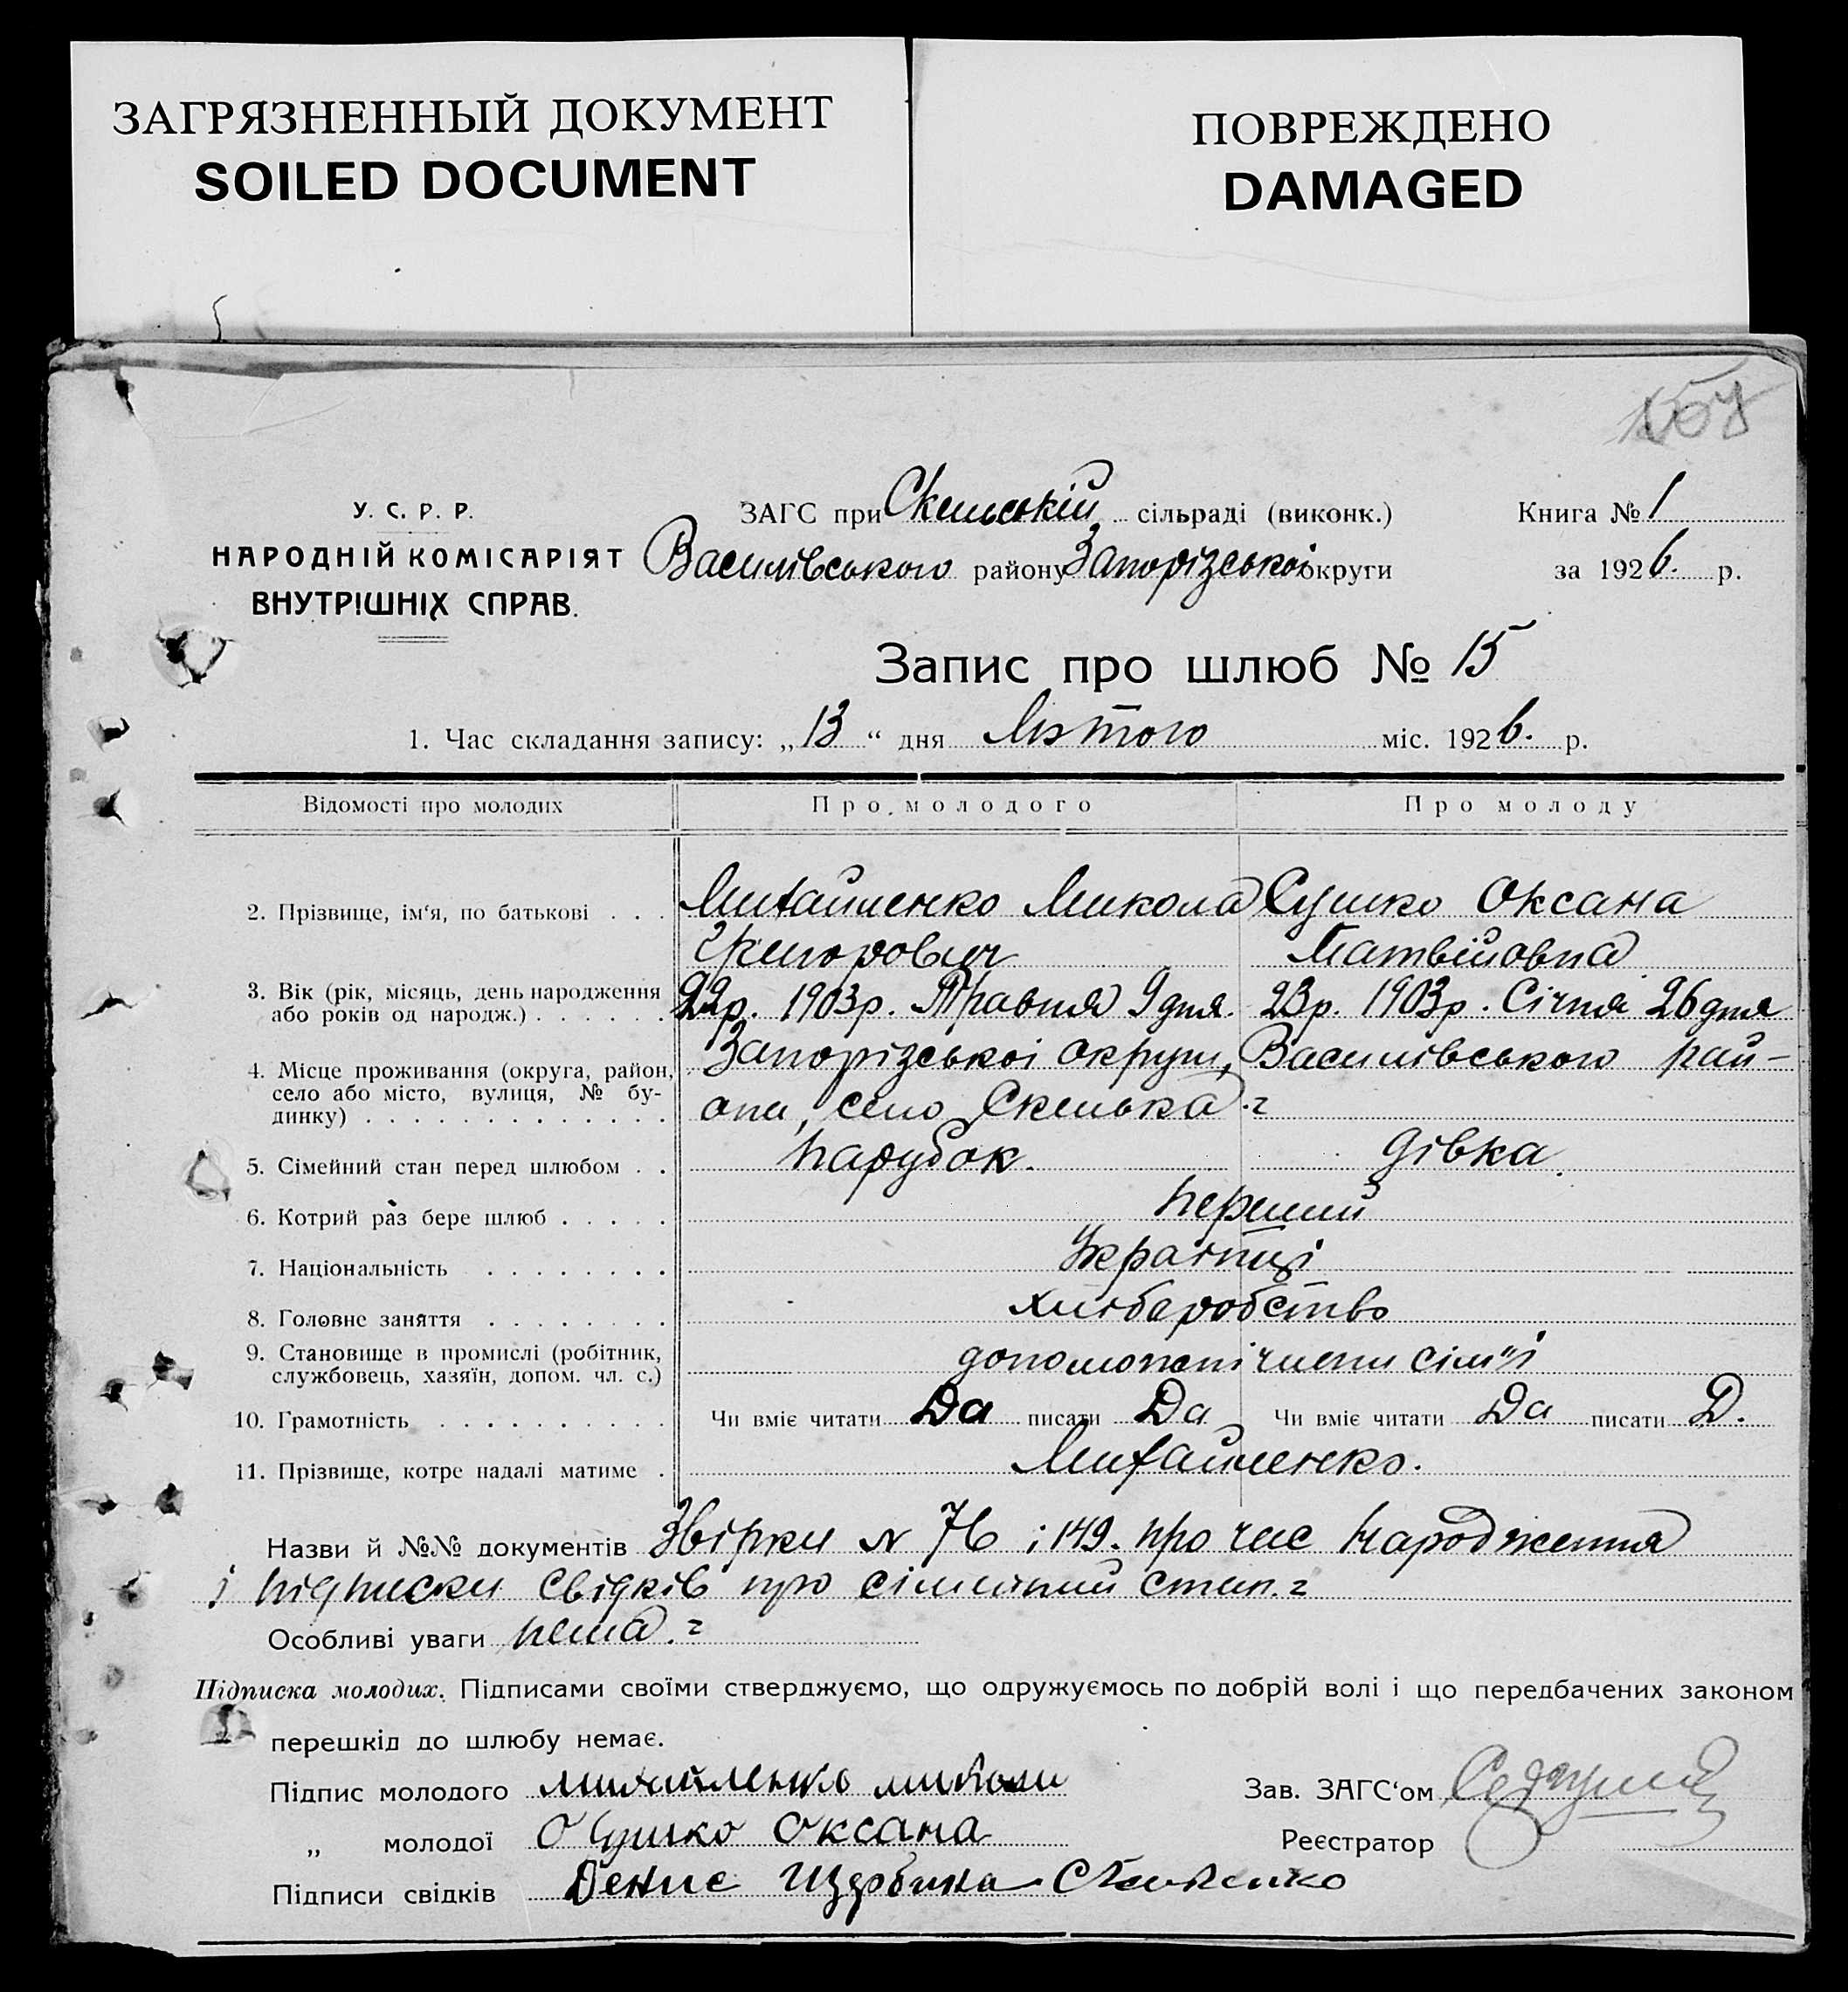 ЗАГРЯЗНЕННЫЙ ДОКУМЕНТ
SOILED DOCUMENT
ПОВРЕЖДЕНО
DAMAGED
У. С. Р. Р.
НАРОДНІЙ КОМІСАРІЯТ
ВНУТРІШНІХ СПРАВ.
ЗАГС при Скельській сільраді (виконк.)
Василівського району Запорізської округи
Книга № 1
за 1926. р.
Запис про шлюб № 15
1. Час складання запису: „13“ дня Лютого міс. 1926. р.
Відомості про молодих Про молодого Про молоду
2. Прізвище, ім‘я, по батькові . . . Михайленко Микола Сушко Оксана
Григорович Матвійовна
3. Вік (рік, місяць, день народження 22р. 1903р. Травня 9 дня. 23р. 1903р. Січня 26 дня
або років од народж.) . . . . . .
4. Місце проживання (округа, район, Запорізської округи, Василівського рай-
село або місто, вулиця, № бу-
динку) . . . . . . . . . . . . . она, село Скелька.
5. Сімейний стан перед шлюбом . . парубок. дівка.
6. Котрий раз бере шлюб . . . . . перший
7. Національність . . . . . . . . Українці
8. Головне заняття . . . . . . . . хліборобство
9. Становище в промислі (робітник, допоможні члени сім'ї
службовець, хазяїн, допом. чл. с.)
10. Грамотність . . . . . . . . . . Чи вміє читати Да писати Да Чи вміє читати Да писати Д.
11. Прізвище, котре надалі матиме . Михайленко.
Назви й №№ документів Звірки № 76 і 149. про час народження
і підписки свідків про сімейний стан.
Особливі уваги нема.
Підписка молодих. Підписами своїми стверджуємо, що одружуємось по добрій волі і що передбачених законом
перешкід до шлюбу немає.
Підпис молодого Михайленко Микола
Зав. ЗАГС‘ом
„ молодої Сушко Оксана
Реєстратор
Підписи свідків Денис Щербина